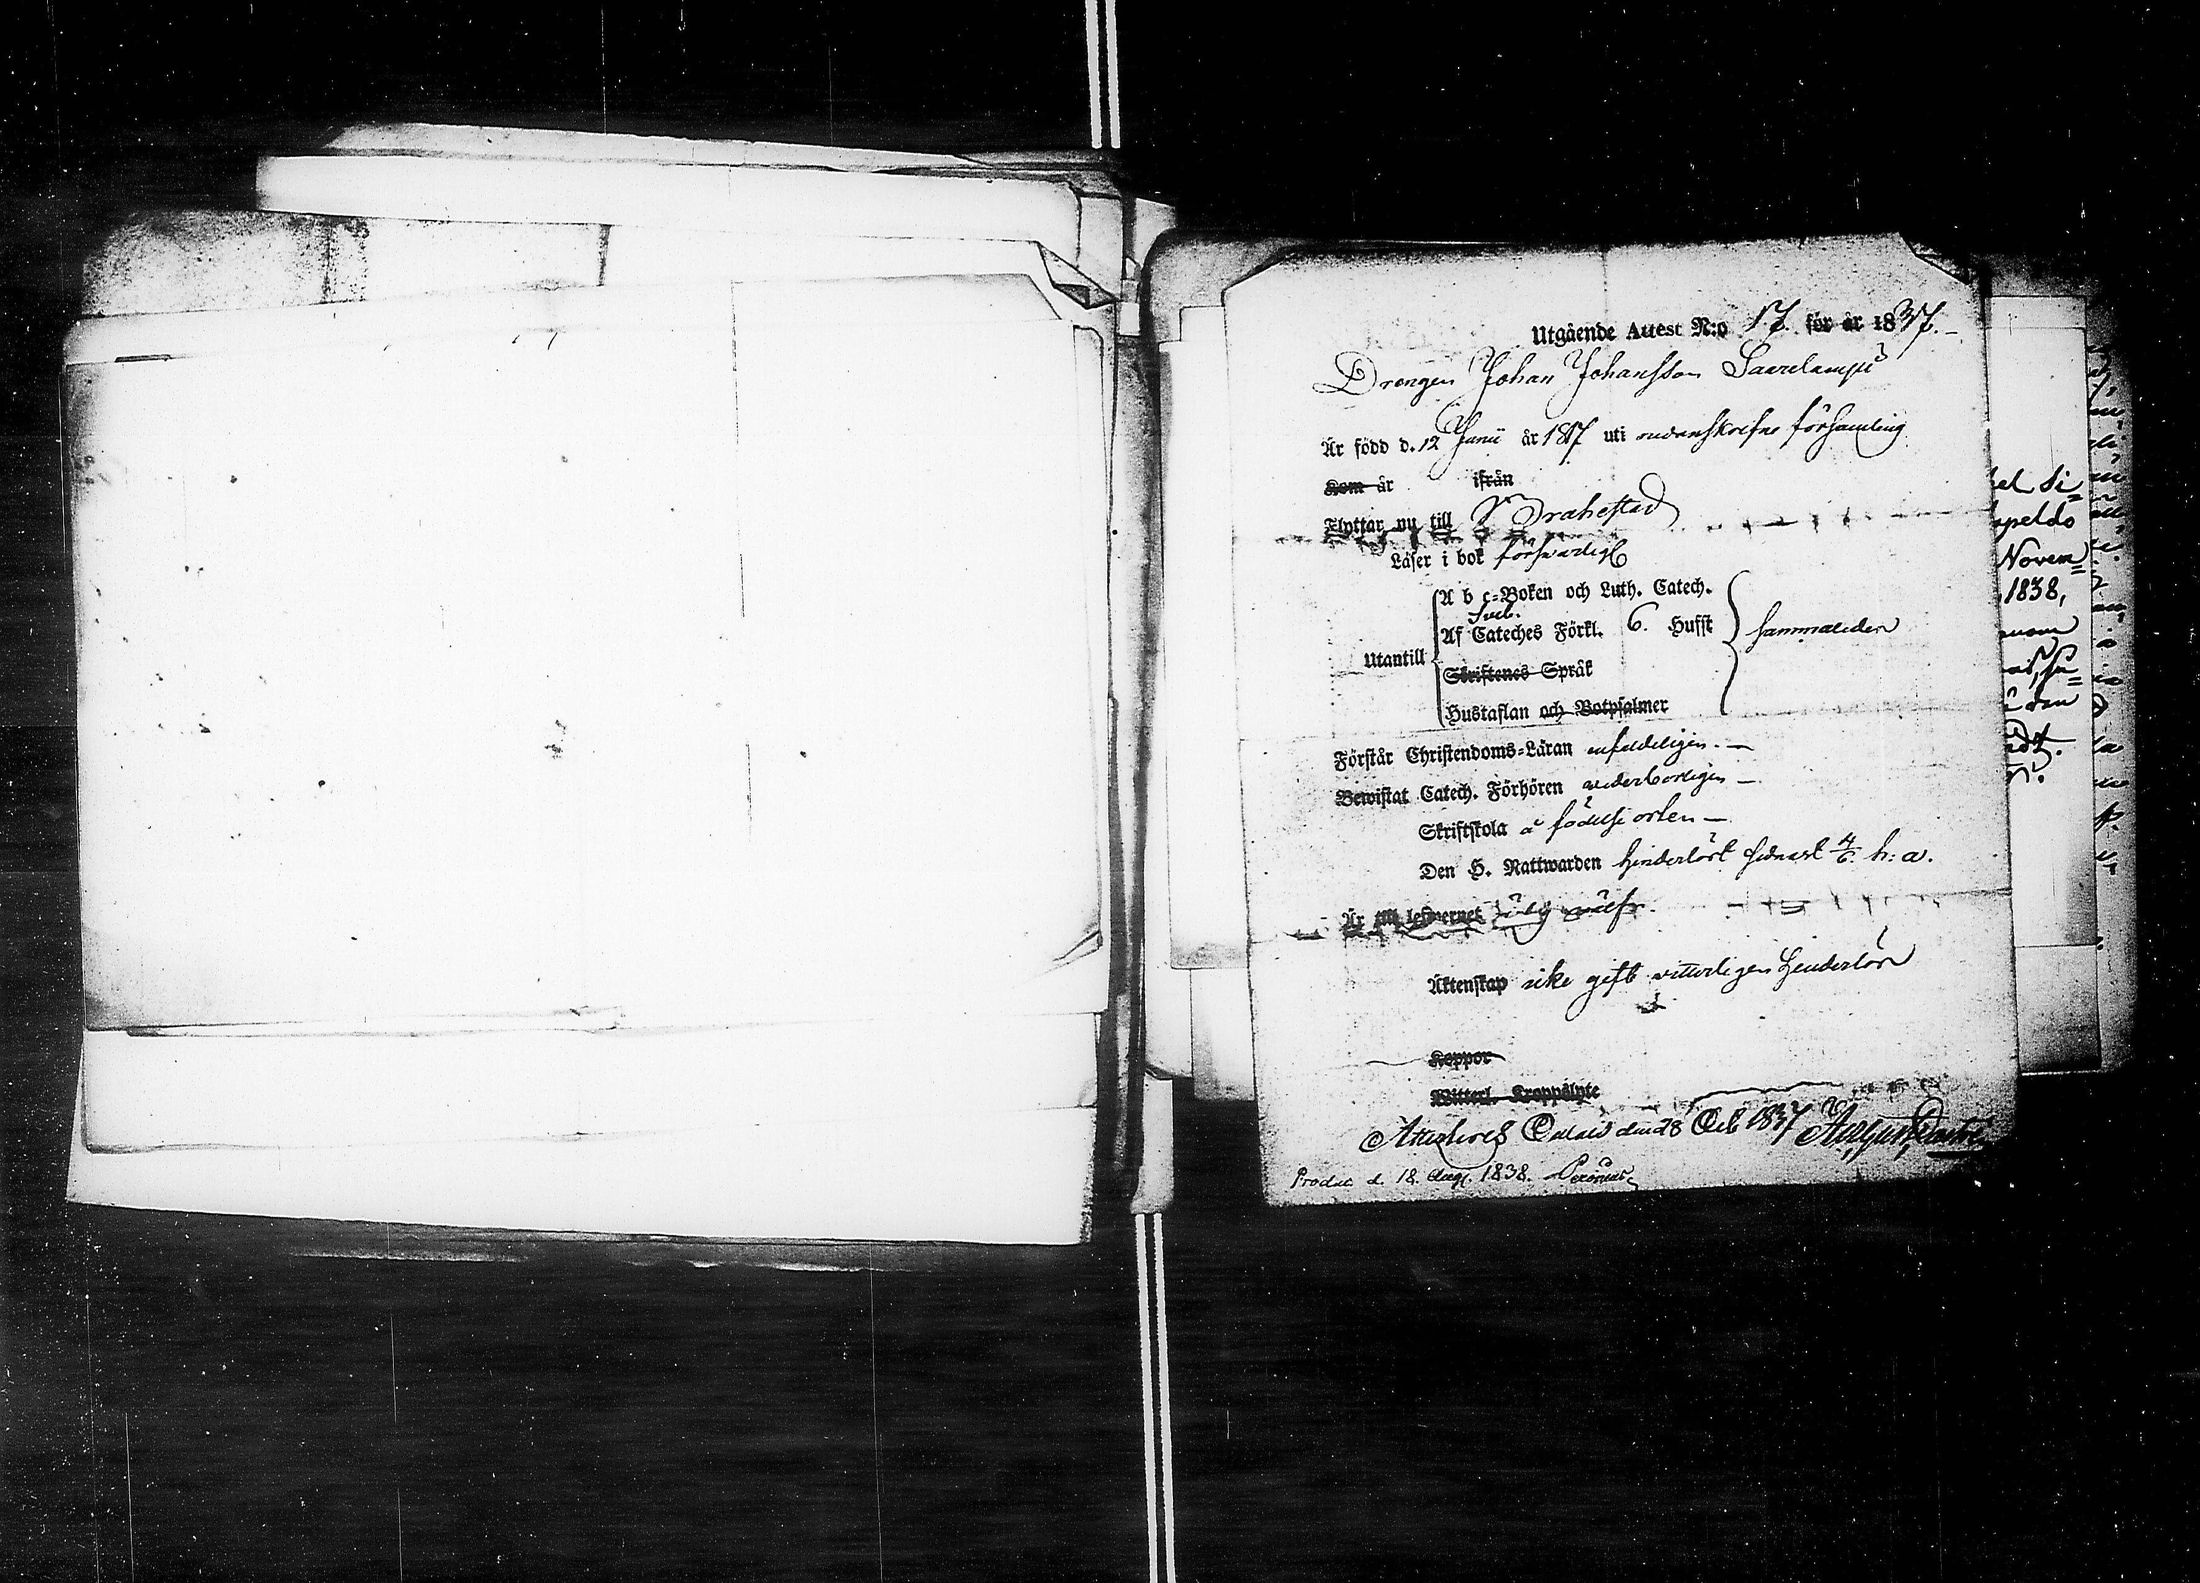 Utgående Attest N:o 17. för år 1837.
Drengen Johan Johansson Saarelampi
Är född d. 12 Junii år 1817 uti nedanskrefne församling
Kom år ifrån
Flyttar nu till Brahestad
Läser i bok försvarligt
A b c-Boken och Luth. Catech.
Sveb.
Af Cateches Förkl. 6. Hufst
sammaledes
Utantill
Skriftenes Språk
Hustaflan och Botpsalmer
Förstår Christendoms-Läran enfaldeligen.
Bewistat Catech. Förhören vederbörligen
Skriftskola å födelse orten
Den H. Nattwarden hinderlöst sednast 4/6 h: a.
Är till lefwernet
Äktenskap icke gift vitterligen hinderlös
Koppor
Witterl. Kroppslyte
Attesteras den 28 1837
Produc. d. 18. Aug. 1838.
Novem=
1838,